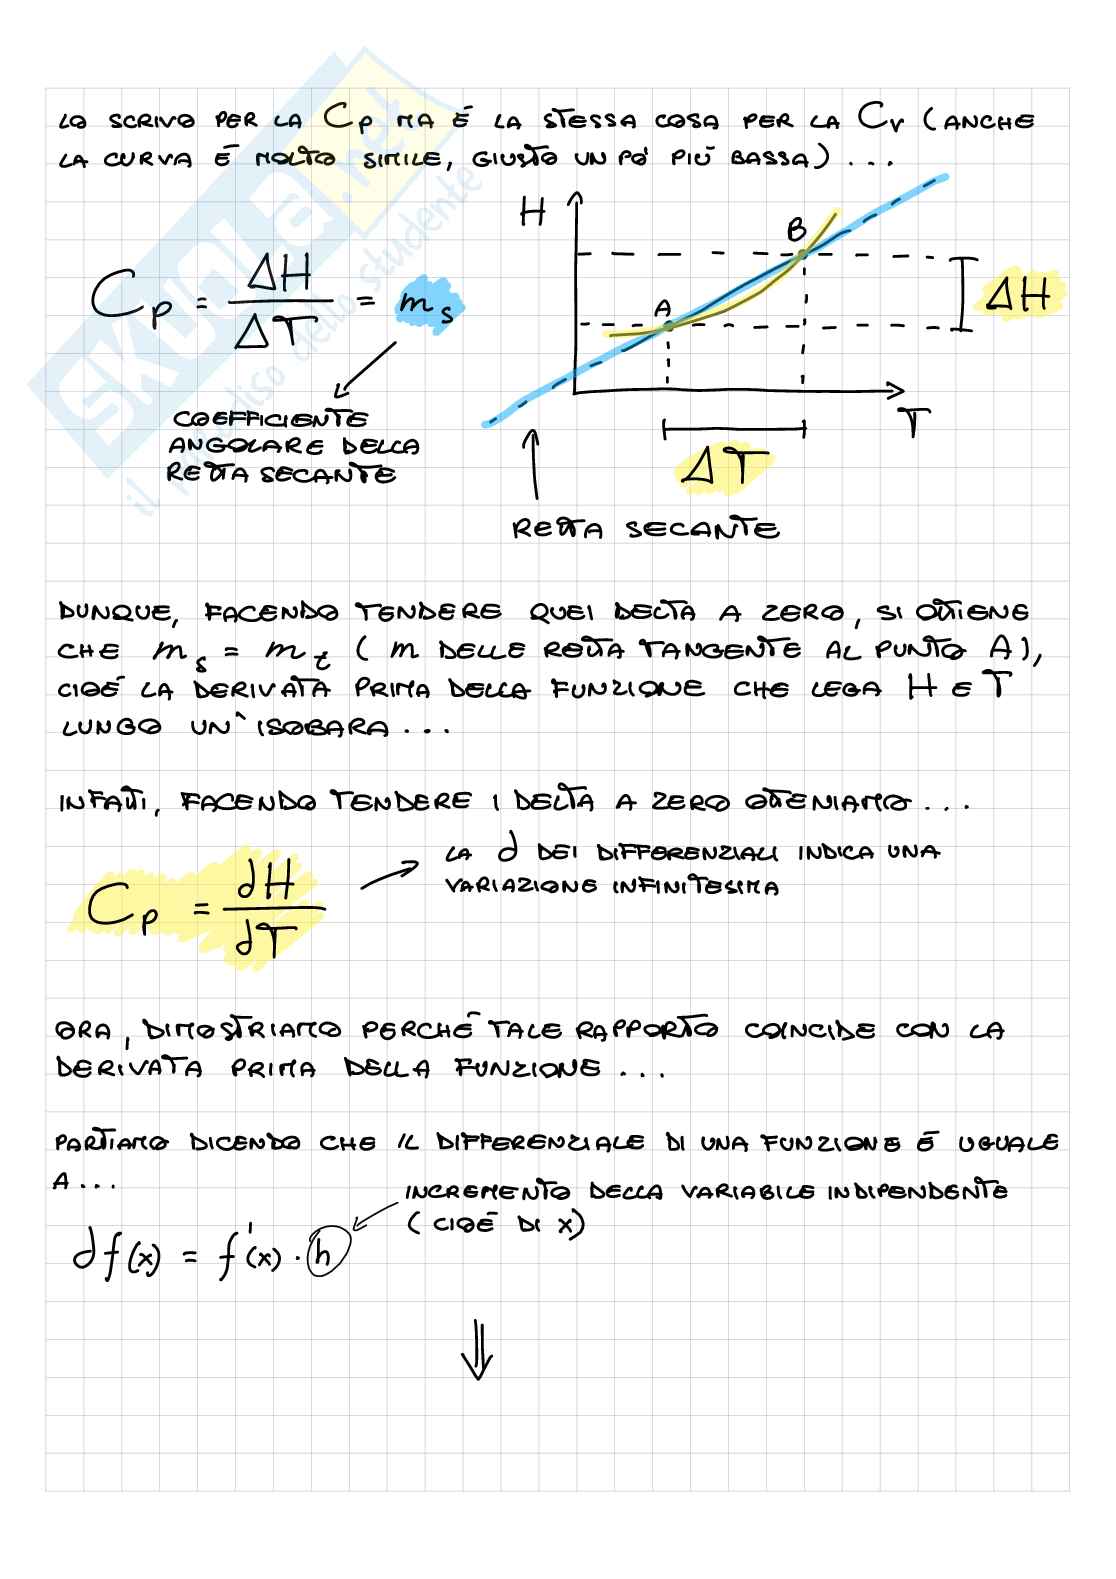 LO SCRIVO PER LA Cp MA É LA STESSA COSA PER LA Cv (ANCHE
LA CURVA É MOLTO SIMILE, GIUSTO UN PO' PIÙ BASSA)...
H
B
A
Cp = ΔH/ΔT = ms
ΔH
T
COEFFICIENTE
ANGOLARE DELLA
RETTA SECANTE
ΔT
RETTA SECANTE
DUNQUE, FACENDO TENDERE QUEI DELTA A ZERO, SI OTTIENE
CHE ms = mt (m DELLE RETTA TANGENTE AL PUNTO A),
CIOÉ LA DERIVATA PRIMA DELLA FUNZIONE CHE LEGA H E T
LUNGO UN' ISOBARA...
INFATTI, FACENDO TENDERE I DELTA A ZERO OTTENIAMO...
Cp = dH/dT
LA d DEI DIFFERENZIALI INDICA UNA
VARIAZIONE INFINITESIMA
ORA, DIMOSTRIAMO PERCHÉ TALE RAPPORTO COINCIDE CON LA
DERIVATA PRIMA DELLA FUNZIONE...
PARTIAMO DICENDO CHE IL DIFFERENZIALE DI UNA FUNZIONE É UGUALE
A...
INCREMENTO DELLA VARIABILE INDIPENDENTE
(CIOÉ DI X)
df(x) = f'(x) · h
⇓
SKUOLA.net
il paradiso dello studente